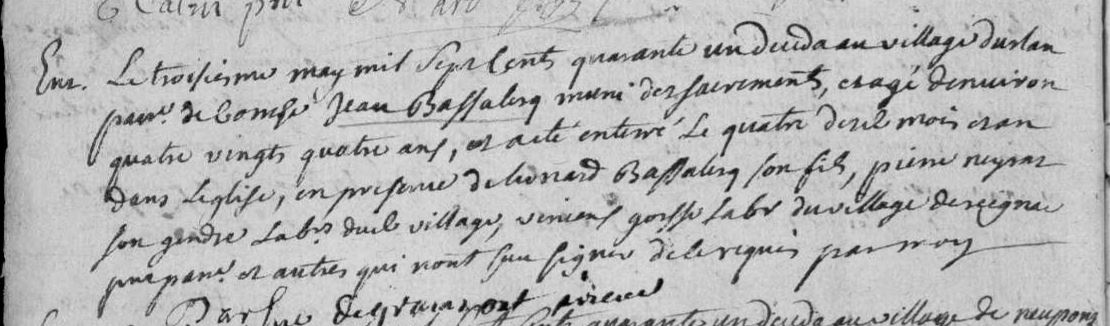 Ent. Le troisieme may mil sept cents quarante un deceda au village durlan
parr. de Combe Jean Bassalerq muni des sacrements, et agé denviron
quatre vingts quatre ans, et a eté enterré Le quatre desd mois et an
dans Leglise, en presence de leonard Bassalerq son fils, pierre neyrat
son gendre Labr dud village, vincens gorsse Labr du village de
pnt parr. et autres qui nont sçeu signer de le requis par moy
un deceda au village de